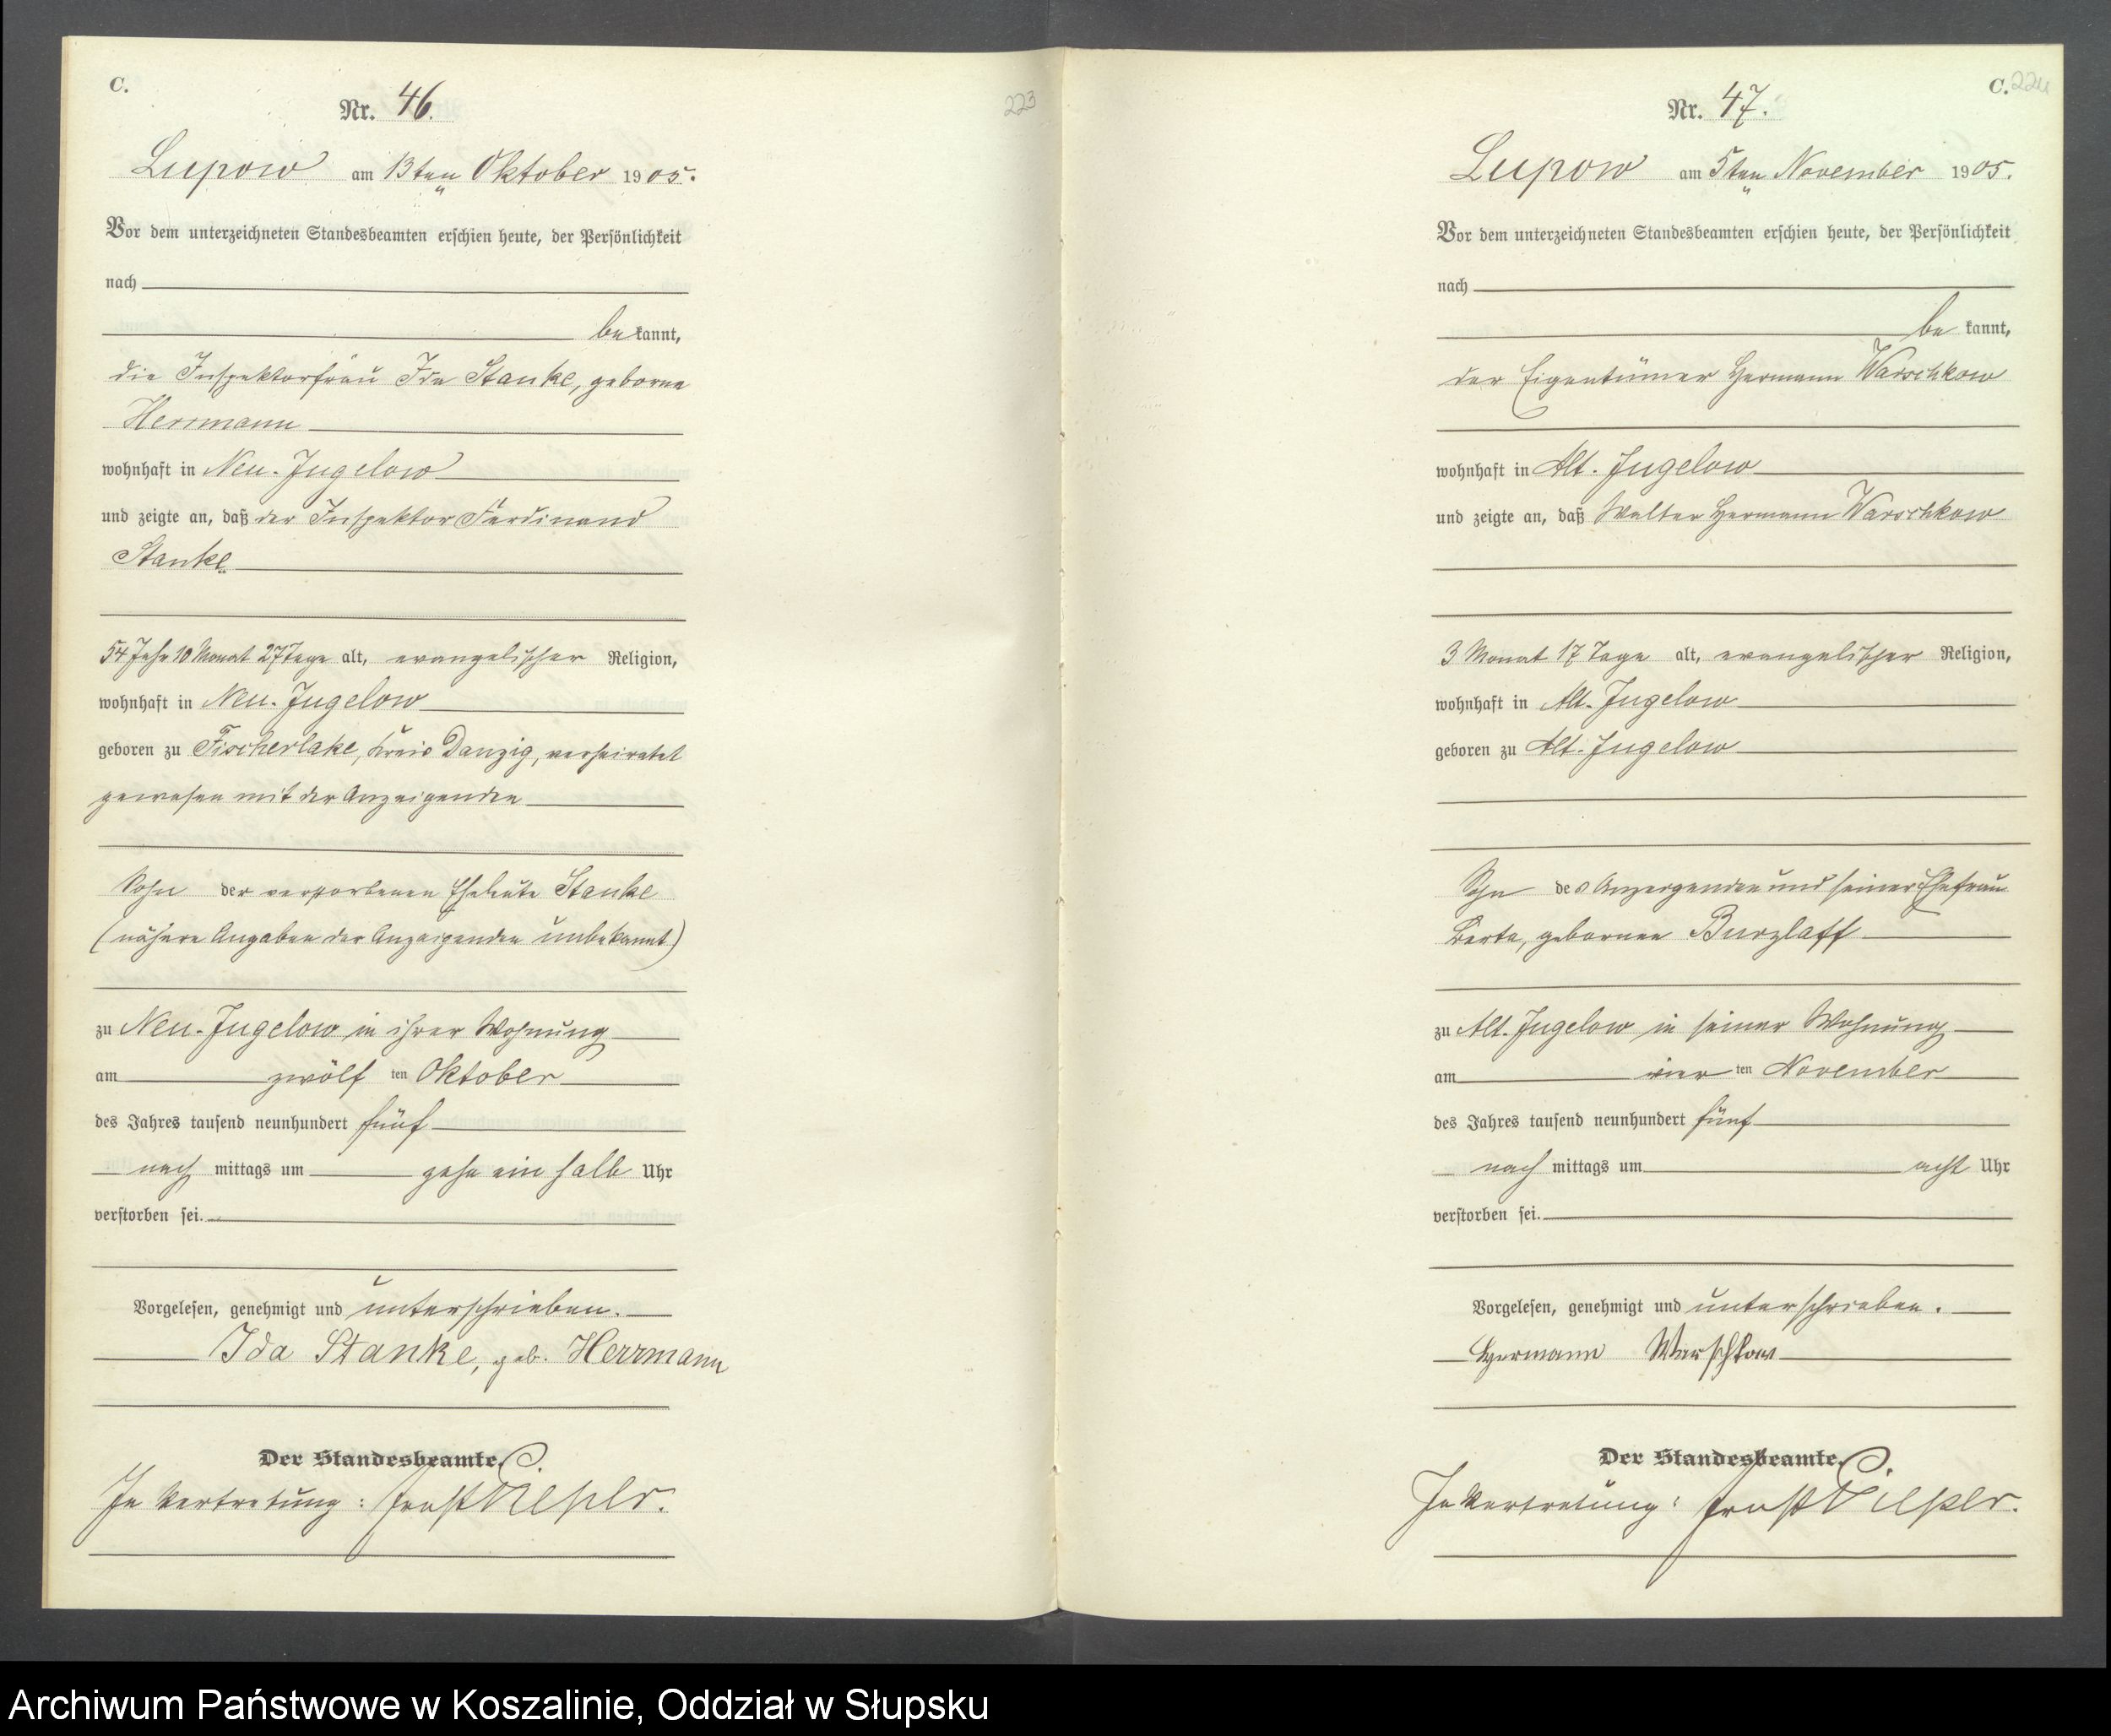 C.
Nr. 46.
223
Lupow am 13ten Oktober 1905.
Vor dem unterzeichneten Standesbeamten erschien heute, der Persönlichkeit
nach
bekannt,
die Inspektorfrau Ida Stanke, geborne
Herrmann
wohnhaft in Neu-Jugelow
und zeigte an, daß der Inspektor Ferdinand
Stanke
54 Jahr 10 Monat 27 Tage alt, evangelischer Religion,
wohnhaft in Neu-Jugelow
geboren zu Fischerlake, Kreis Danzig, verheiratet
gewesen mit der Anzeigenden
Sohn der verstorbenen Eheleute Stanke
(nähere Angaben der Anzeigenden unbekannt)
zu Neu-Jugelow in ihrer Wohnung
am zwölf ten Oktober
des Jahres tausend neunhundert fünf
nach mittags um zehn ein halb Uhr
verstorben sei.
Vorgelesen, genehmigt und unterschrieben.
Ida Stanke, geb. Herrmann
Der Standesbeamte.
In Vertretung: Ernst Pieper.
C. 224
Nr. 47.
Lupow am 5ten November 1905.
Vor dem unterzeichneten Standesbeamten erschien heute, der Persönlichkeit
nach
be kannt,
der Eigentümer Hermann Warschkow
wohnhaft in Alt-Jugelow
und zeigte an, daß Walter Hermann Warschkow
3 Monat 17 Tage alt, evangelischer Religion,
wohnhaft in Alt-Jugelow
geboren zu Alt-Jugelow
Sohn des Anzeigenden und seiner Ehefrau
Berta, gebornen Burzlaff
zu Alt-Jugelow in seiner Wohnung
am vier ten November
des Jahres tausend neunhundert fünf
nach mittags um acht Uhr
verstorben sei.
Vorgelesen, genehmigt und unterschrieben.
Hermann Warschkow
Der Standesbeamte.
In Vertretung: Ernst Pieper.
Archiwum Państwowe w Koszalinie, Oddział w Słupsku